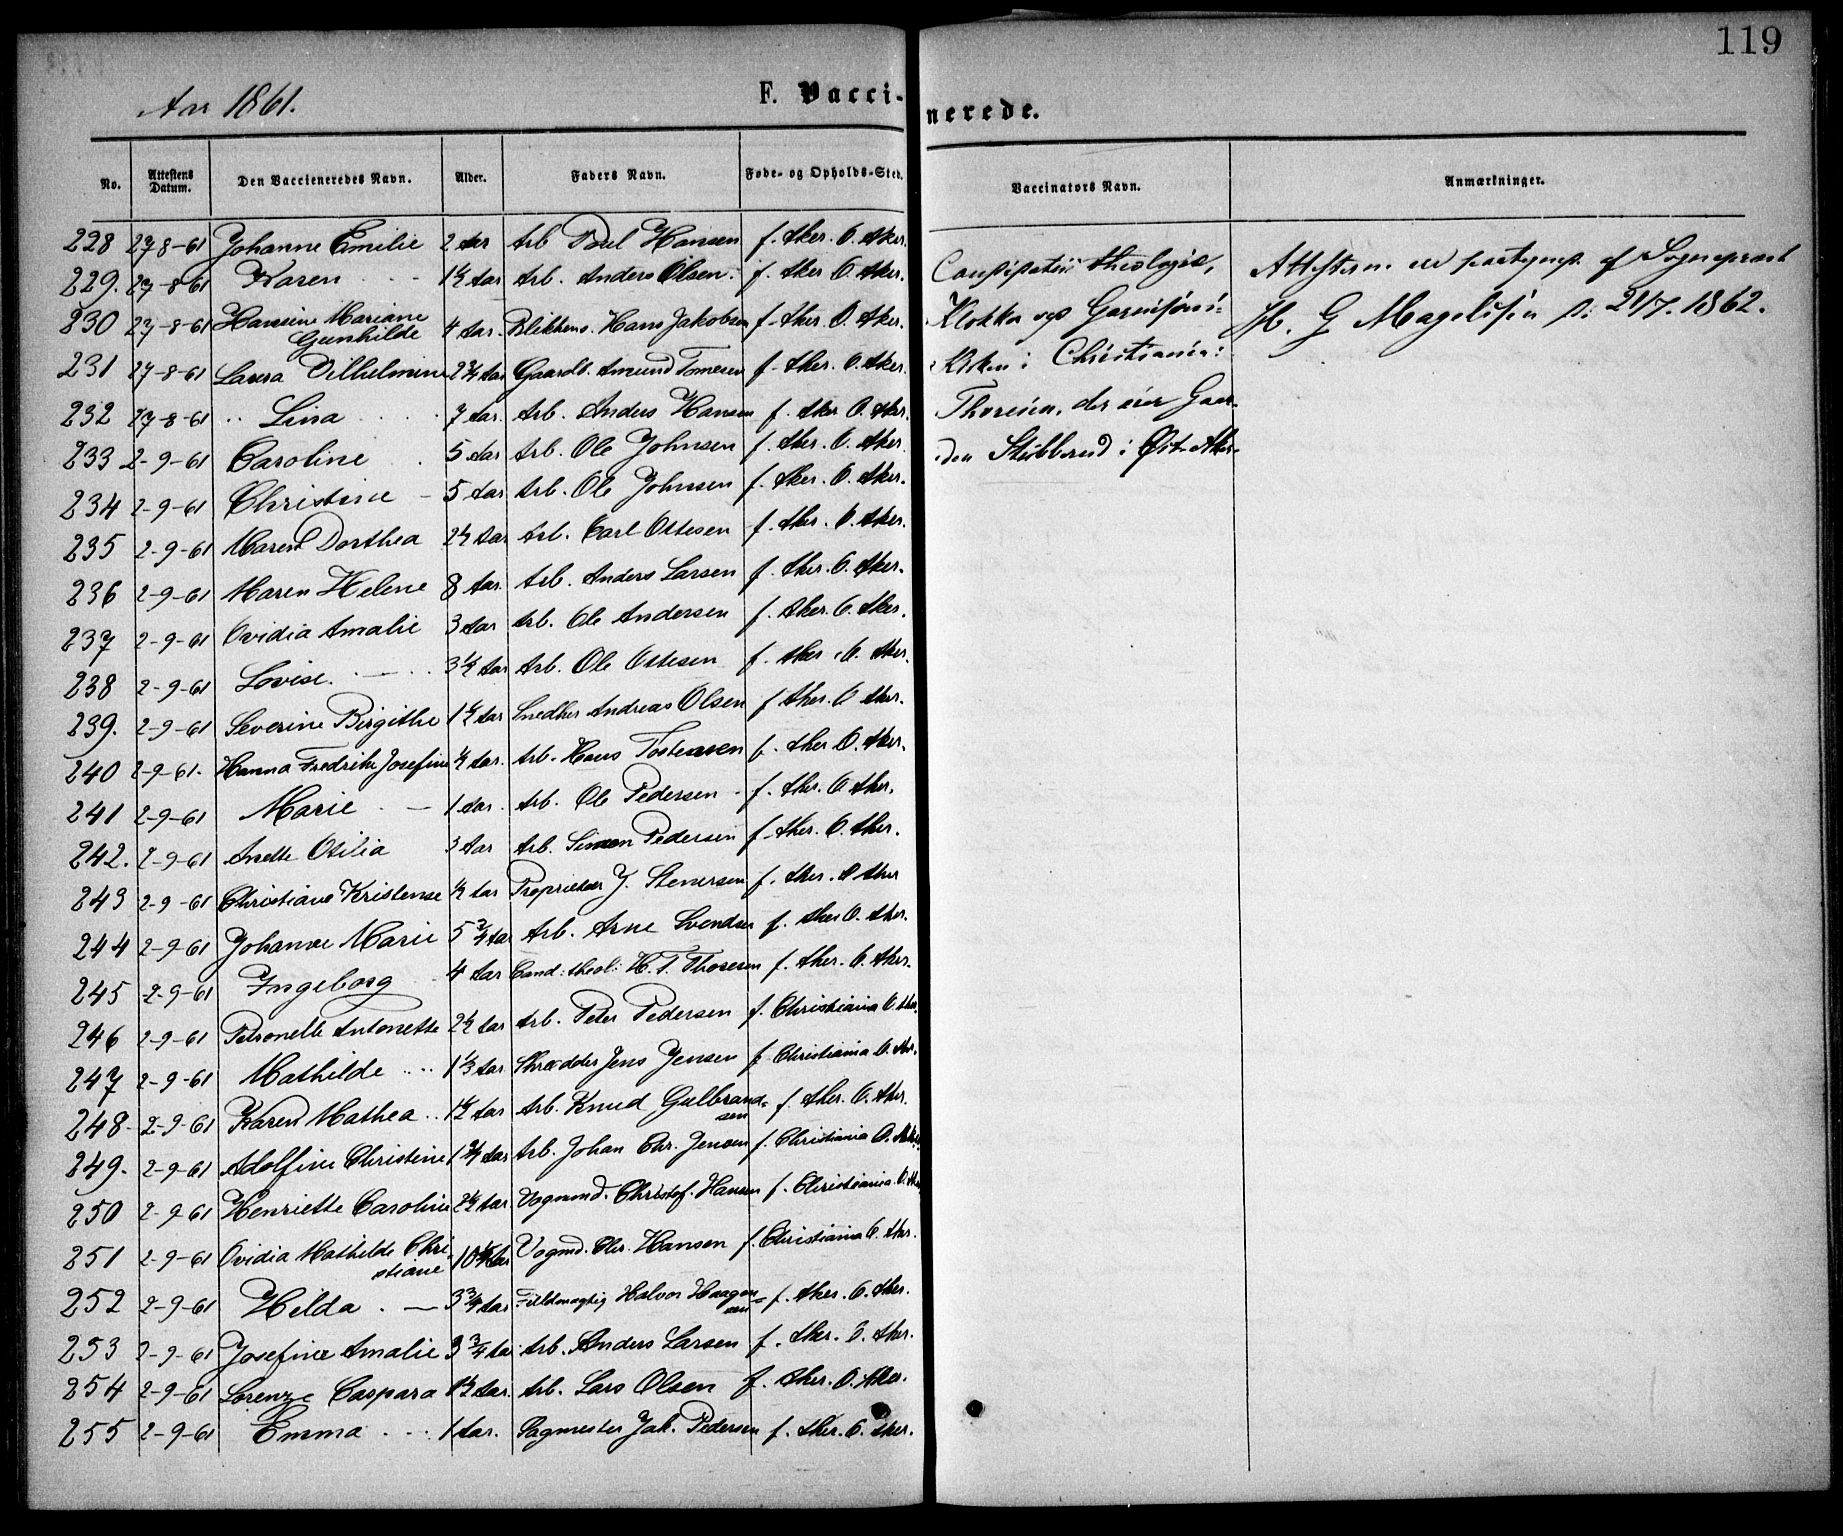 119
Aar 1861.
F. Vaccinerede.
No. Attestens Datum. Den Vaccieneredes Navn. Alder. Faders Navn. Føde- og Opholds-Sted. Vaccinators Navn. Anmærkninger.
228 27-8-61 Johanne Emilie 2 Aar Arb Poul Hansen f. Aker. O. Aker.
229. 27-8-61 Karen 1½ Aar Arb. Anders Olsen f. Aker O. Aker.
230 27-8-61 Hansine Mariane Gunhilde 4 Aar. Blikkens. Hans Jakobsen f. Aker. O. Aker.
231 27-8-61 Laura Vilhelmine 2¾ Aar Gaardb. Amund Tomesen f. Aker. O. Aker.
232 27-8-61 Lina 7 Aar. Arb. Anders Hansen f. Aker O. Aker.
233 2-9-61 Caroline 5 Aar Arb. Ole Johnsen f. Aker. O. Aker.
234 2-9-61 Christine 5 Aar Arb. Ole Johnsen f. Aker. O. Aker.
235 2-9-61 Maren Dorthea 2½ Aar Arb. Carl Ottesen f. Aker. O. Aker.
236 2-9-61 Maren Helene 8 Aar. Arb. Anders Larsen f. Aker. O. Aker.
237 2-9-61 Ovidia Amalie 3 Aar Arb. Ole Andersen f. Aker. O. Aker.
238 2-9-61 Lovise. 3½ Aar Arb. Ole Ottesen f. Aker. O. Aker.
239. 2-9-61 Severine Birgithe 1½ Aar Snedker Andreas Olsen f Aker. O Aker.
240 2-9-61. Hanna Fredrike Josefine ½ Aar. Arb. Hans Tostensen f. Aker O. Aker.
241 2-9-61 Marie 1 Aar. Arb. Ole Pedersen f. Aker. O Aker.
242. 2-9-61 Anette Otilia 3 Aar Arb. Simon Pedersen f. Aker. O. Aker.
243 2-9-61 Christiane Kristense ½ Aar Proprietær J. Stenersen f. Aker. O Aker
244 2-9-61 Johanne Marie 5¾ Aar Arb. Arne Svendsen f. Aker O. Aker.
245 2-9-61 Ingeborg 4 Aar Cand: theol: H. T. Thoresen f. Aker. O. Aker.
246 2-9-61 Petronelle Antonette 2½ Aar Arb. Peter Pedersen f. Christiania O Aker.
247 2-9-61 Mathilde 1⅓ Aar Skrædder Jens Jensen f. Christiania O. Aker.
248. 2-9-61 Karen Mathea 1½ Aar Arb. Knud Gulbrandsen f. Aker. O. Aker.
249. 2-9-61 Adolfine Christine 1¾ Aar Arb. Johan Chr. Jensen f. Christiania O. Aker.
250 2-9-61 Henriette Caroline 2½ Aar Vognmd. Christof. Hansen f. Christiania. O. Aker
251 2-9-61 Ovidia Mathilde Christiane 10½ Aar Vognd. Chr. Hansen f. Christiania O. Aker.
252 2-9-61 Hilda 3¾ Aar Fuldmægtig Halvor Haagensen f. Aker. O. Aker.
253 2-9-61 Josefine Amalie 3¾ Aar Arb. Anders Larsen f. Aker. O. Aker.
254 2-9-61 Lorenze Caspara 1½ Aar. Arb. Lars Olsen f. Aker. O. Aker.
255 2-9-61 Emma 1 Aar. Sagmester Jak. Pedersen f. Aker. O. Aker.
theologiæ,
Klokker ved Garnisons-
kirken i Christiania:
Thoresen, der eier Gaar-
den Stubberud i Østr Aker
Attesterne er af Sogneprest
H. G Magelssen d. 21/7. 1862.